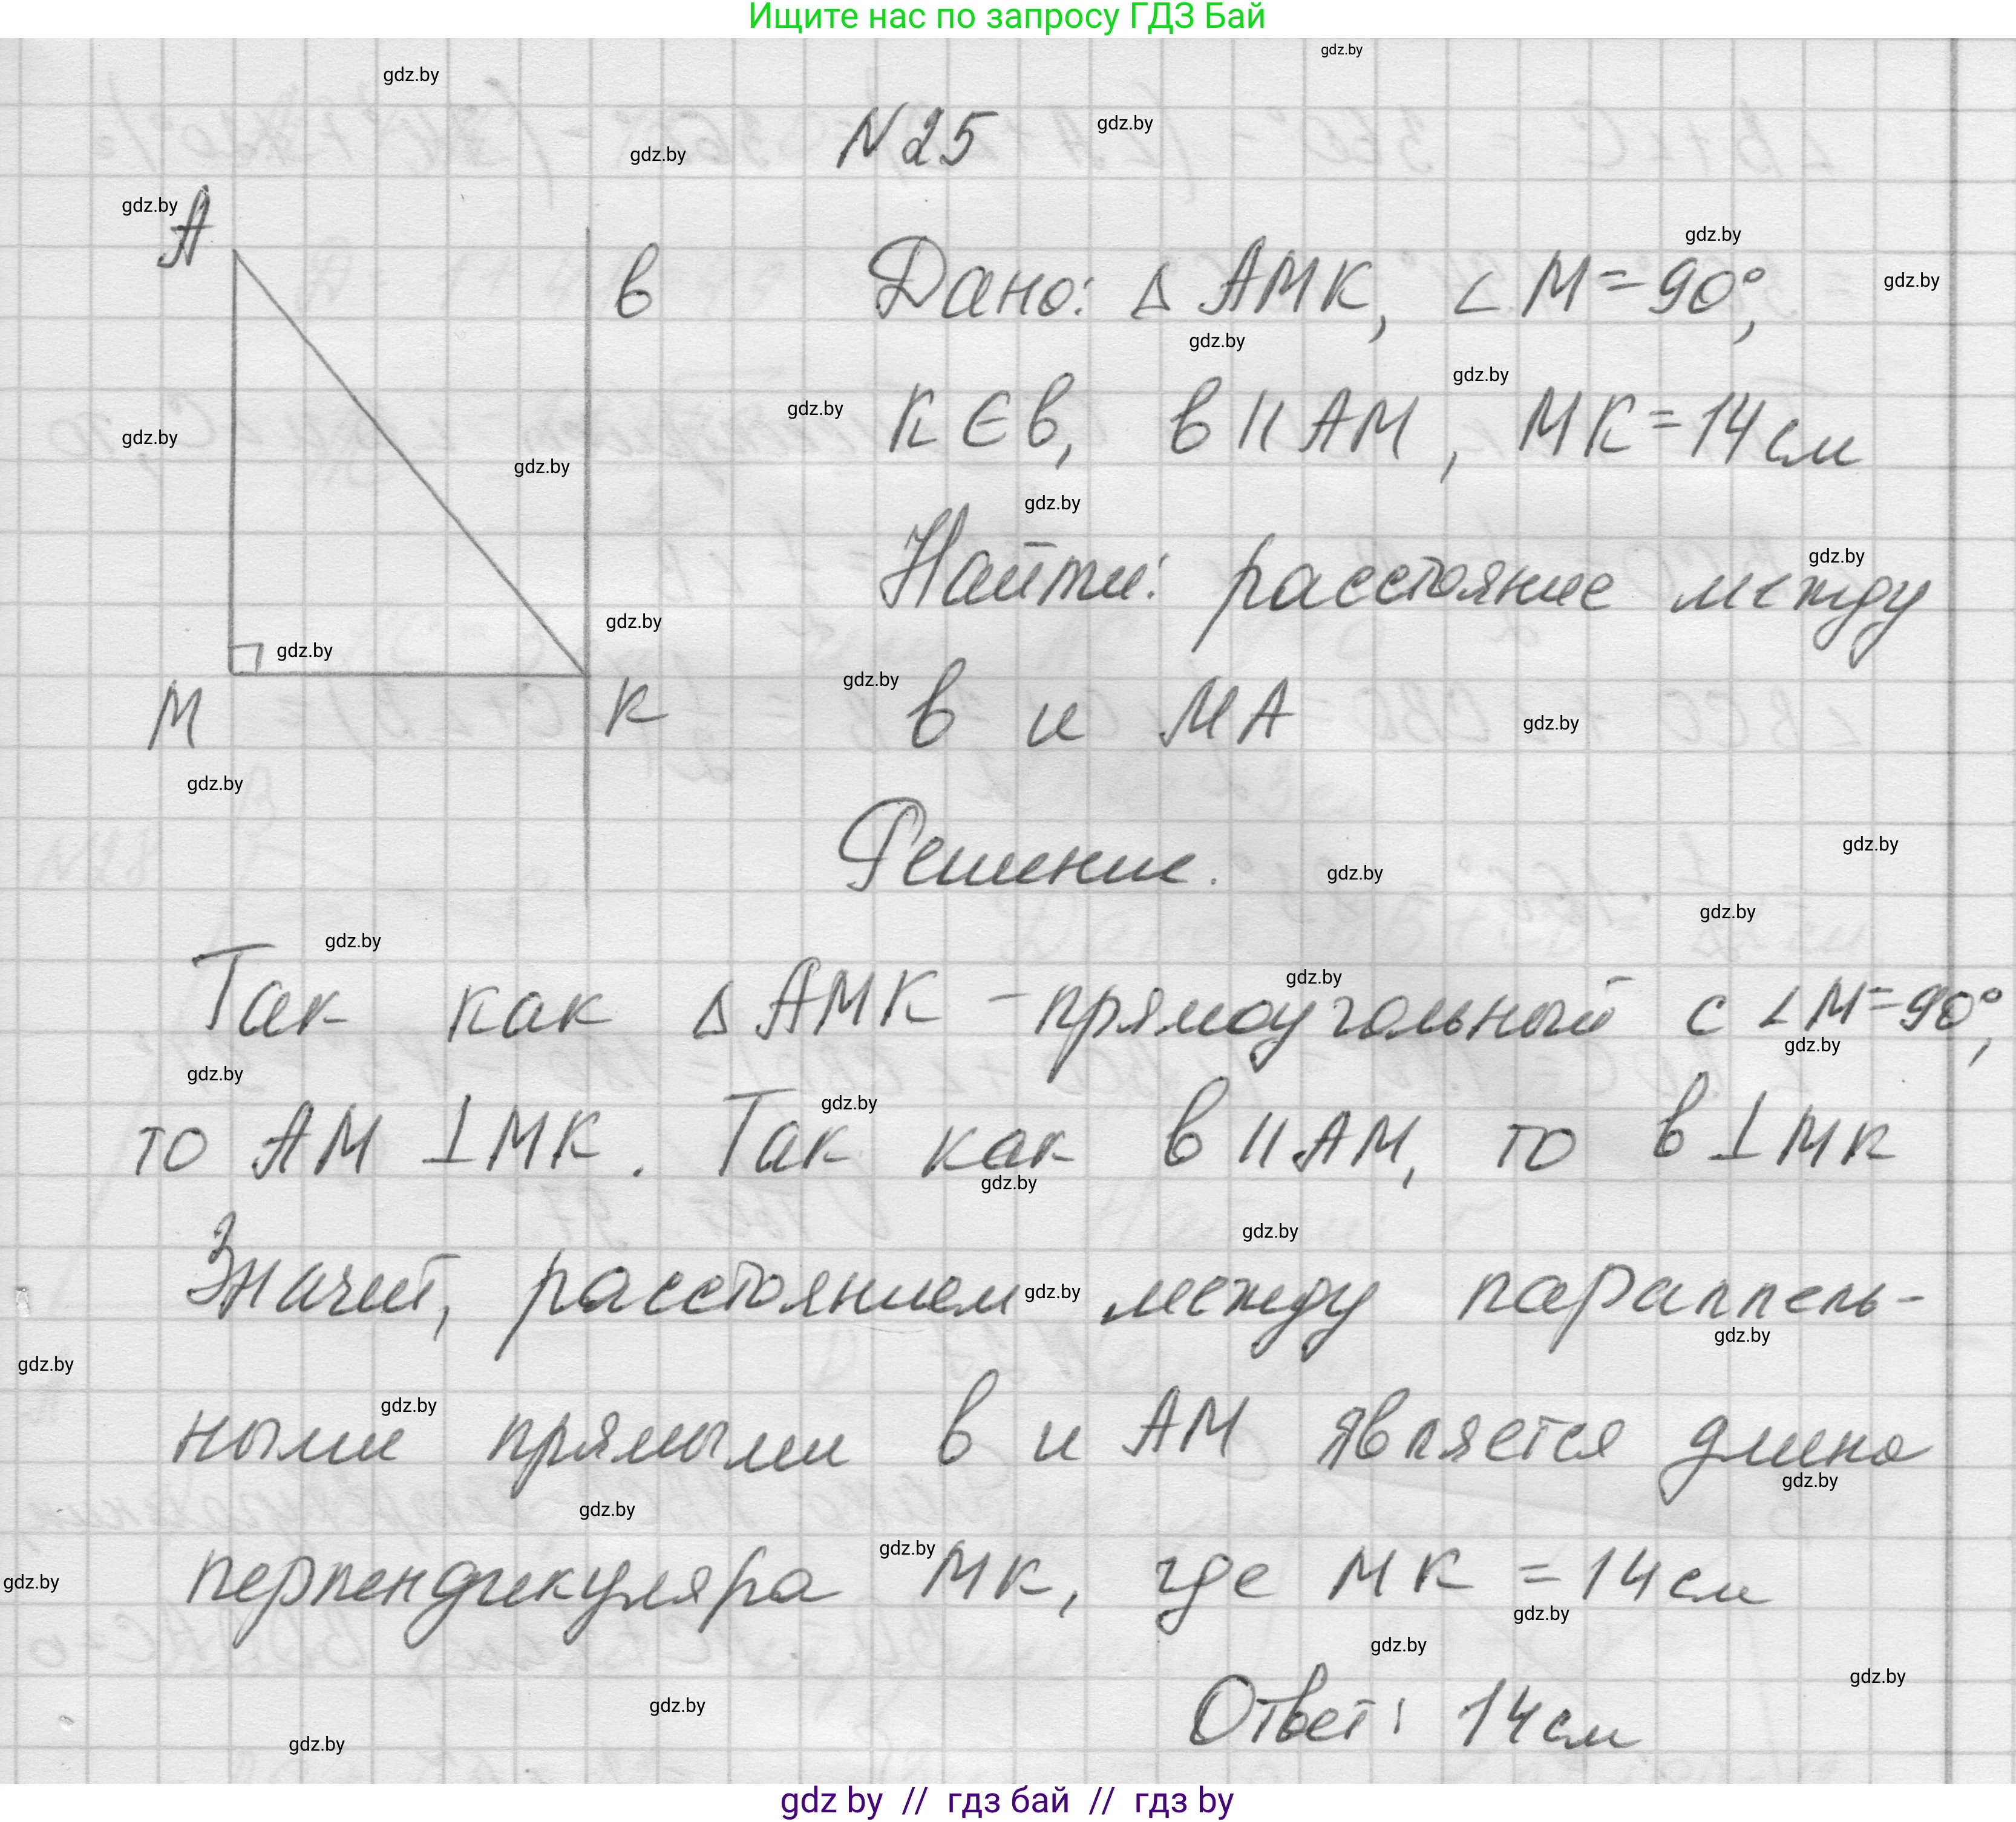 Ищите нас по запросу ГДЗ Бай
N 25
A
в
M
K
Дано: Δ АМК, ∠ М=90°,
К Є в, в || АМ, МК=14 см
Найти: расстояние между
в и МА
Решение.
Так как Δ АМК - прямоугольный с ∠ М=90°,
то АМ ⊥ МК. Так как в || АМ, то в ⊥ МК
Значит, расстоянием между параллель-
ными прямыми в и АМ является длина
перпендикуляра МК, где МК = 14 см
Ответ: 14 см
gdz by // гдз бай // гдз by